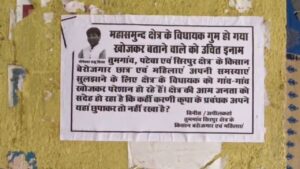 महासमुन्द क्षेत्र के विधायक गुम हो गया
खोजकर बताने वाले को उचित इनाम
तुमगांव, पटेवा एवं सिरपुर क्षेत्र के किसान
बेरोजगार छात्र एवं महिलाएं अपनी समस्याएं
सुलझाने के लिए क्षेत्र के विधायक को गांव-गांव
खोजकर परेशान हो रहे हैं। क्षेत्र की आम जनता को
संदेह हो रहा है कि कहीं करणी कृपा के प्रबंधक अपने
यहां छुपाकर तो नहीं रखा है?
विनीत / अपीलकर्ता
तुमगांव सिरपुर क्षेत्र के
किसान बेरोजगार एवं महिलाएं